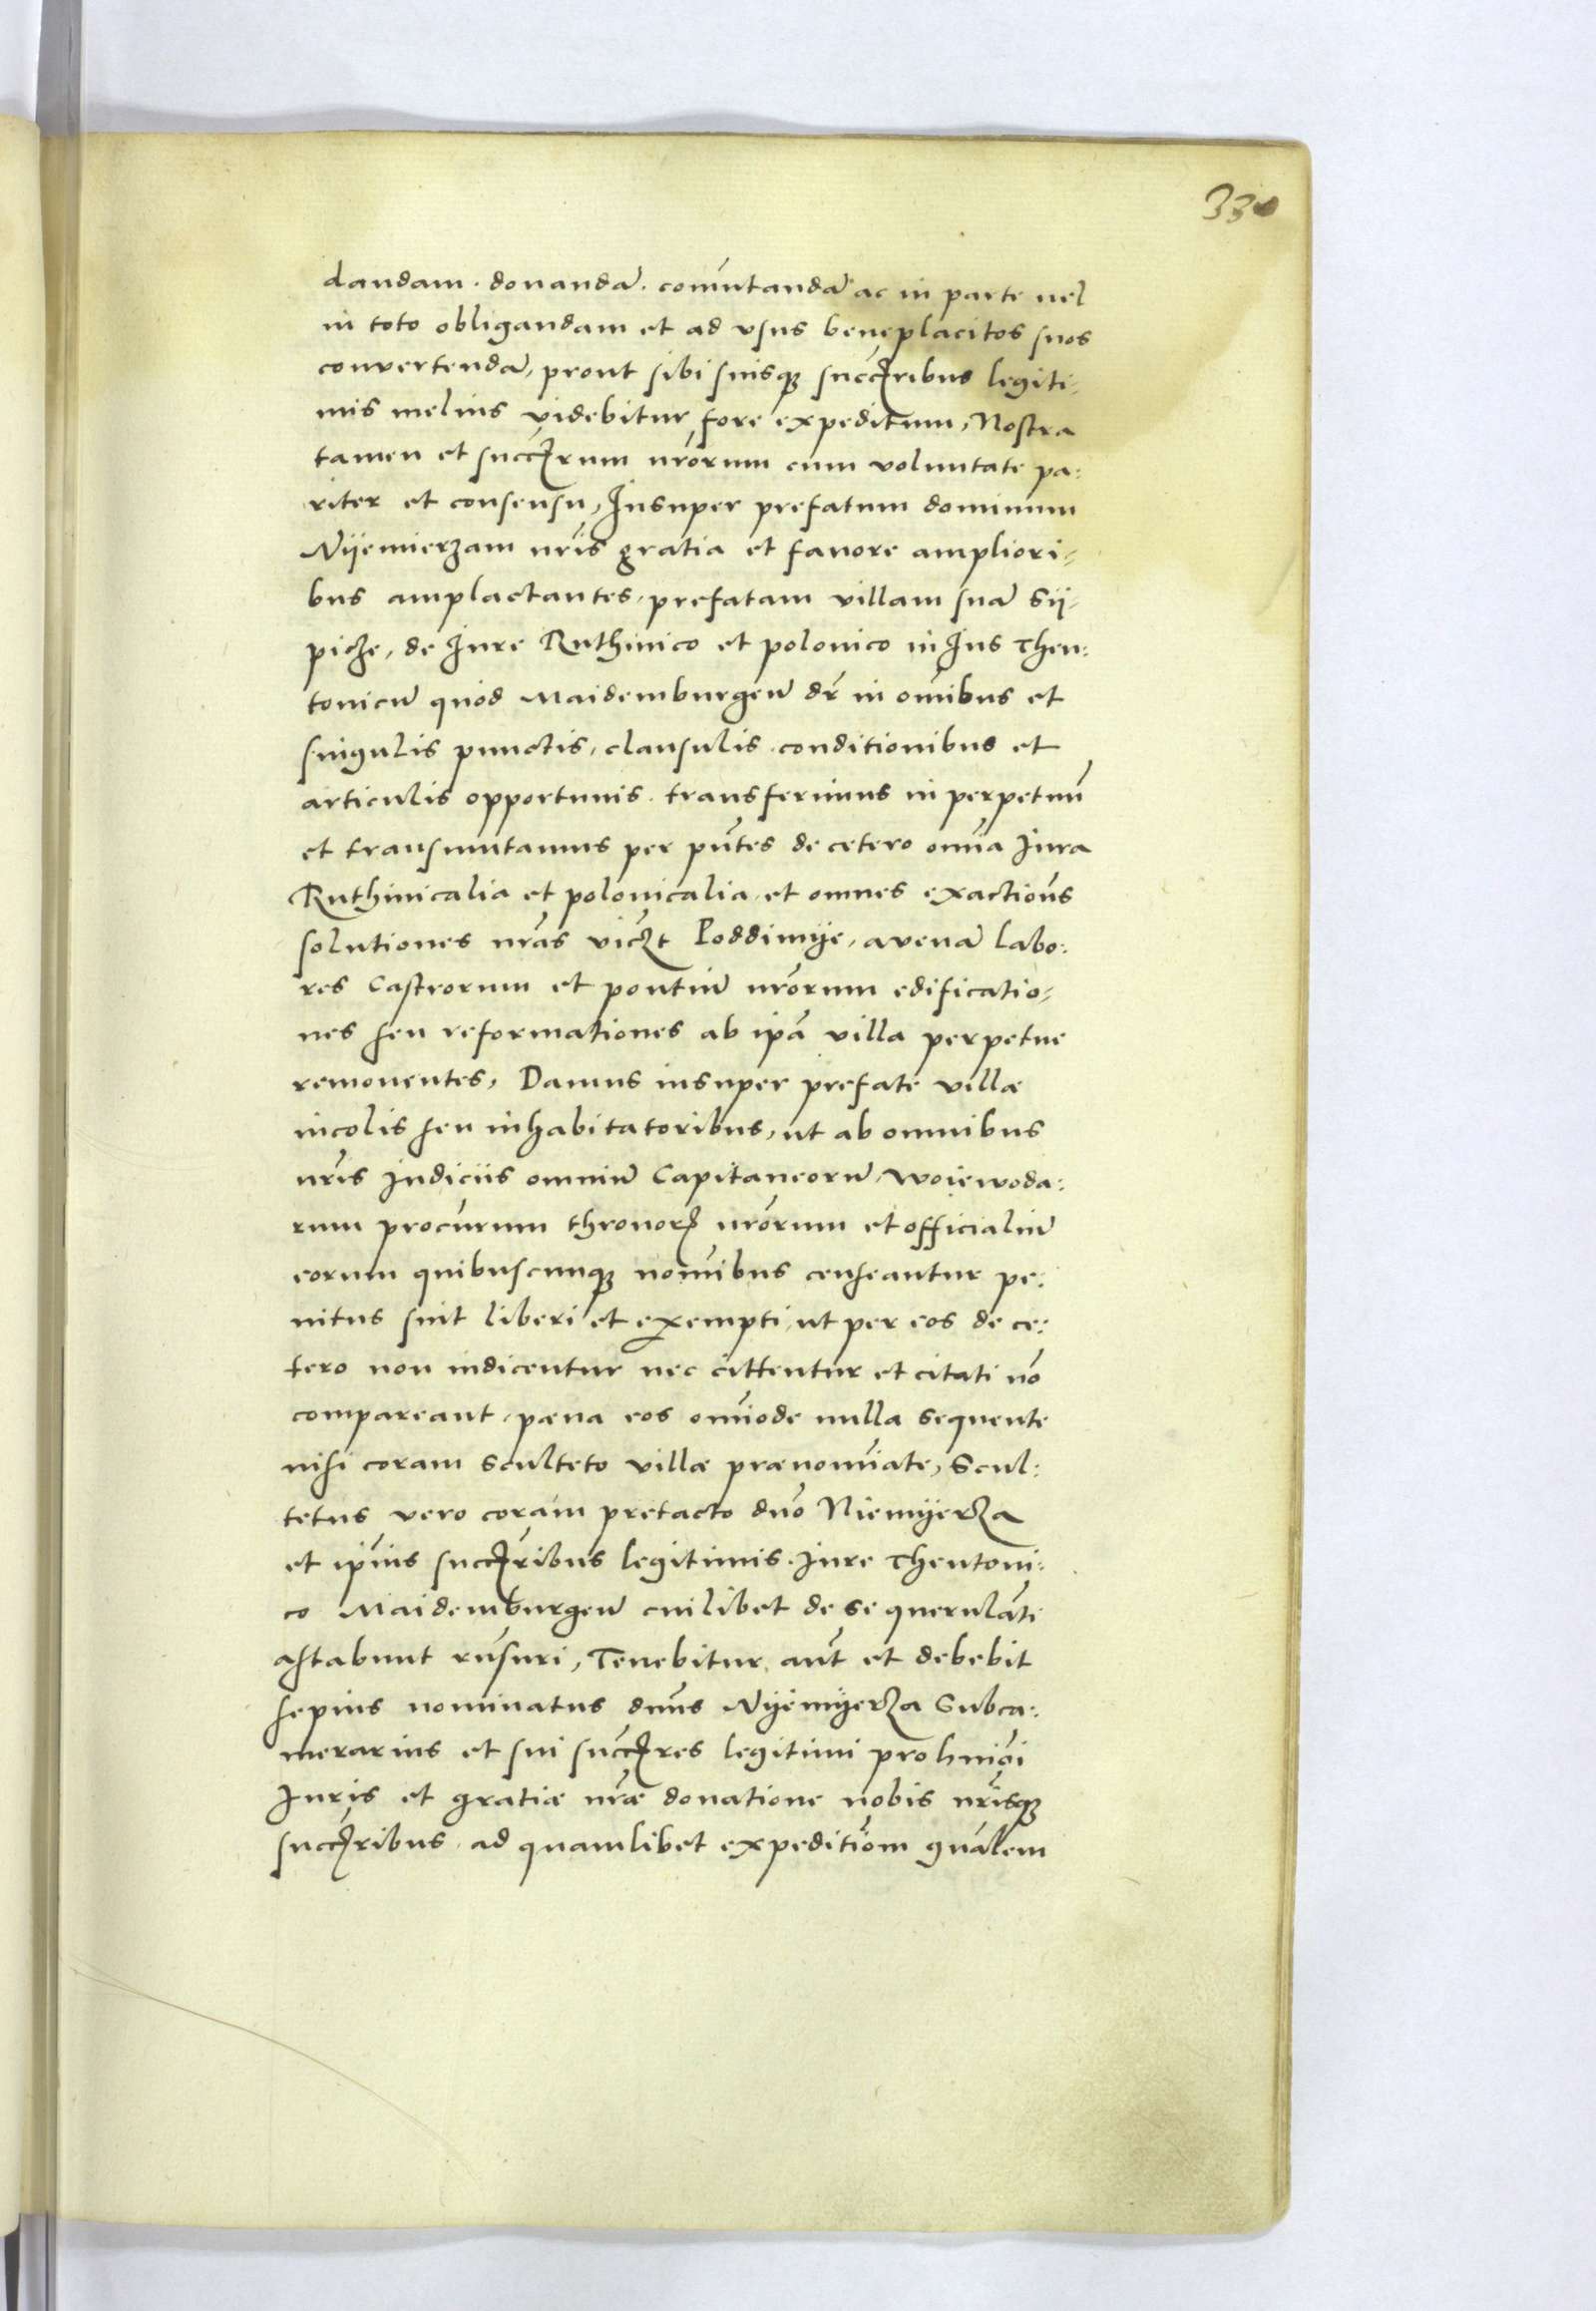 330
dandam. donandā. comūtandā ac in parte uel
in toto obligandam et ad vsus beneplacitos suos
convertendā, prout sibi suisqꝫ succr̄ibus legiti-
mis melius videbitur fore expeditum, Nostra
tamen et succr̄um nr̄orum cum voluntate pa:
riter et consensu, Insuper prefatum dominum
Nyemierzam nr̄is gratia et fauore ampliori-
bus amplactantes, prefatam villam suā Sij-
piche, de Jure Ruthinico et polonico in Jus Theu:
tonicū quod Maidemburgen̄ dr̄ in om̄ibus et
singulis punctis, clausulis. conditionibus et
articulis opportunis. transferimus in perpetuū
et transmutamus per pn̄tes de cetero om̄ia Jura
Ruthinicalia et polonicalia, et omnes exactioēs
solutiones nr̄as viczt Poddimye, avenā labo:
res Castrorum et pontiū nr̄orum edificatio-
nes seu reformationes ab ip̄a villa perpetue
remouentes, Damus insuper prefate villæ
incolis seu inhabitatoribus, ut ab omnibus
nr̄is Judiciis omniū Capitaneorū, woiewoda:
rum procūrum thronorꝝ nr̄orum et officialiū
eorum quibuscunqꝫ nom̄ibus censeantur pe:
nitus sint liberi et exempti, ut per eos de ce:
tero non iudicentur nec cittentur et citati nō
compareant, pæna eos om̄iode nulla sequente
nisi coram Sculteto villæ prænom̄iate, Scul:
tetus vero coram pretacto dn̄o Niemyerza
et ip̄ius succr̄ibus legitimis. Jure Theutoni:
co Maidemburgen̄ cuilibet de se querulāti
astabunt rn̄suri, Tenebitur aūt et debebit
sepius nominatus dn̄us Nyemyerza Subca:
merarius et sui succr̄es legitimi pro hm̄oi
Juris et gratiæ nr̄æ donatione nobis nr̄isqꝫ
succr̄ibus. ad quamlibet expeditiōm gn̄alem